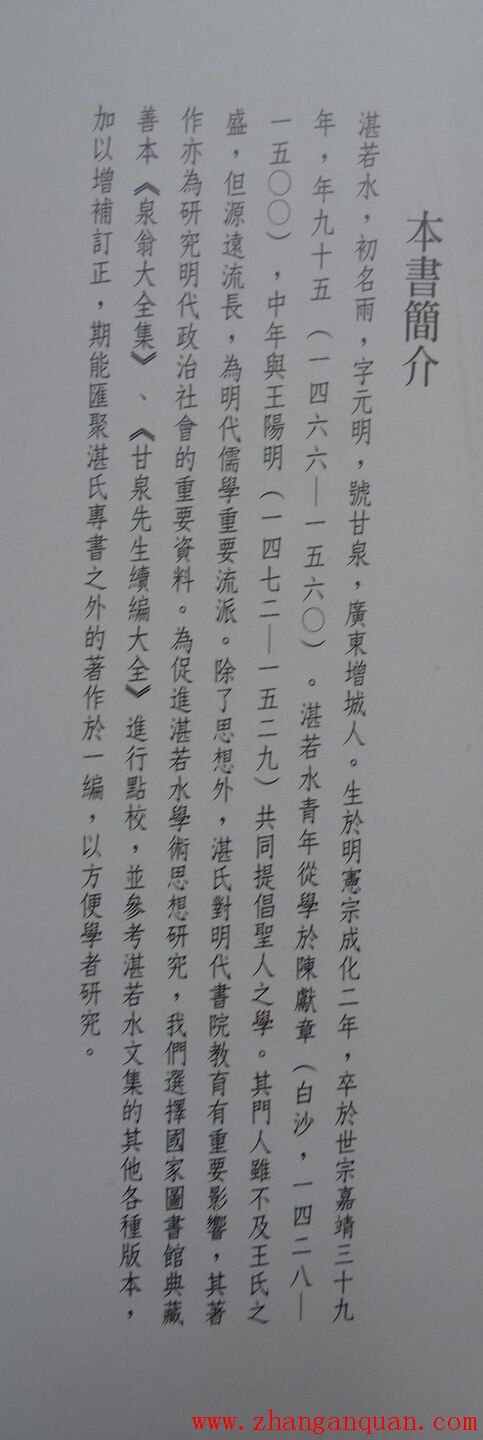 本書簡介
湛若水，初名雨，字元明，號甘泉，廣東增城人。生於明憲宗成化二年，卒於世宗嘉靖三十九
年，年九十五（一四六六—一五六〇）。湛若水青年從學於陳獻章（白沙，一四二八—
一五〇〇），中年與王陽明（一四七二—一五二九）共同提倡聖人之學。其門人雖不及王氏之
盛，但源遠流長，為明代儒學重要流派。除了思想外，湛氏對明代書院教育有重要影響，其著
作亦為研究明代政治社會的重要資料。為促進湛若水學術思想研究，我們選擇國家圖書館典藏
善本《泉翁大全集》、《甘泉先生續編大全》進行點校，並參考湛若水文集的其他各種版本，
加以增補訂正，期能匯聚湛氏專書之外的著作於一編，以方便學者研究。
www.zhanganquan.com